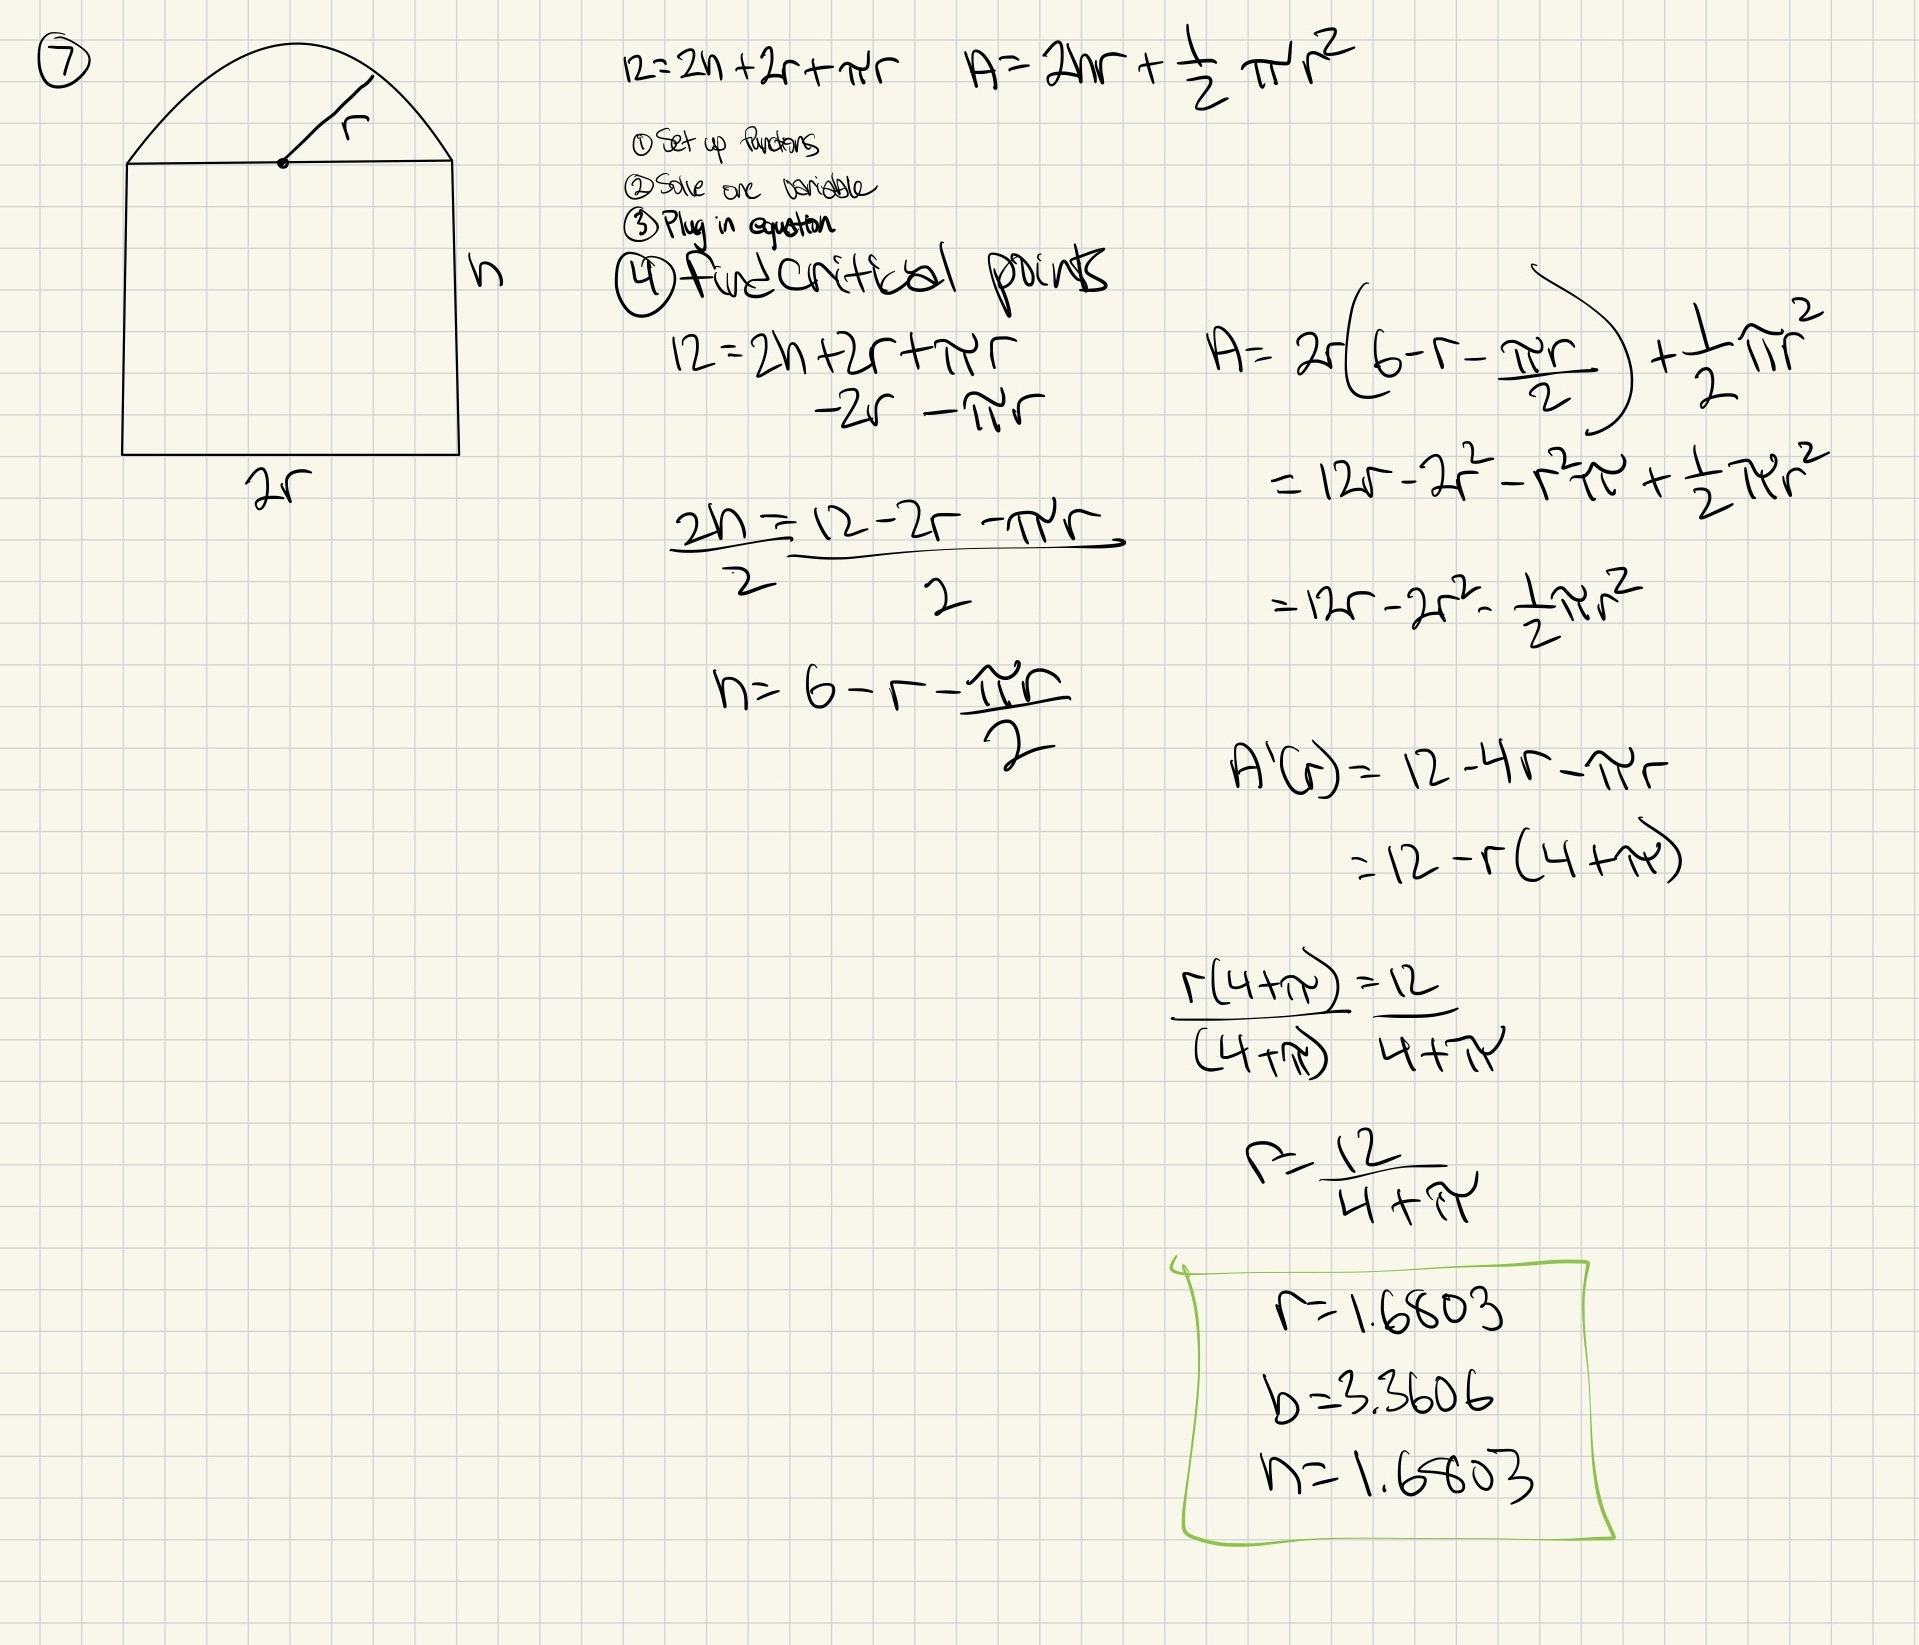 ⑦
r
h
2r
12=2h+2r+πr    A=2hr+1/2 πr²
① Set up functions
② Solve one variable
③ Plug in equation
④ find critical points
12=2h+2r+πr
-2r -πr
2h/2 = (12-2r-πr)/2
h= 6-r-πr/2
A= 2r(6-r-πr/2)+1/2 πr²
= 12r-2r²-r²π+1/2 πr²
=12r-2r²-1/2 πr²
A'(r)= 12-4r-πr
=12-r(4+π)
r(4+π)/(4+π) = 12/(4+π)
r= 12/(4+π)
r=1.6803
b=3.3606
h=1.6803